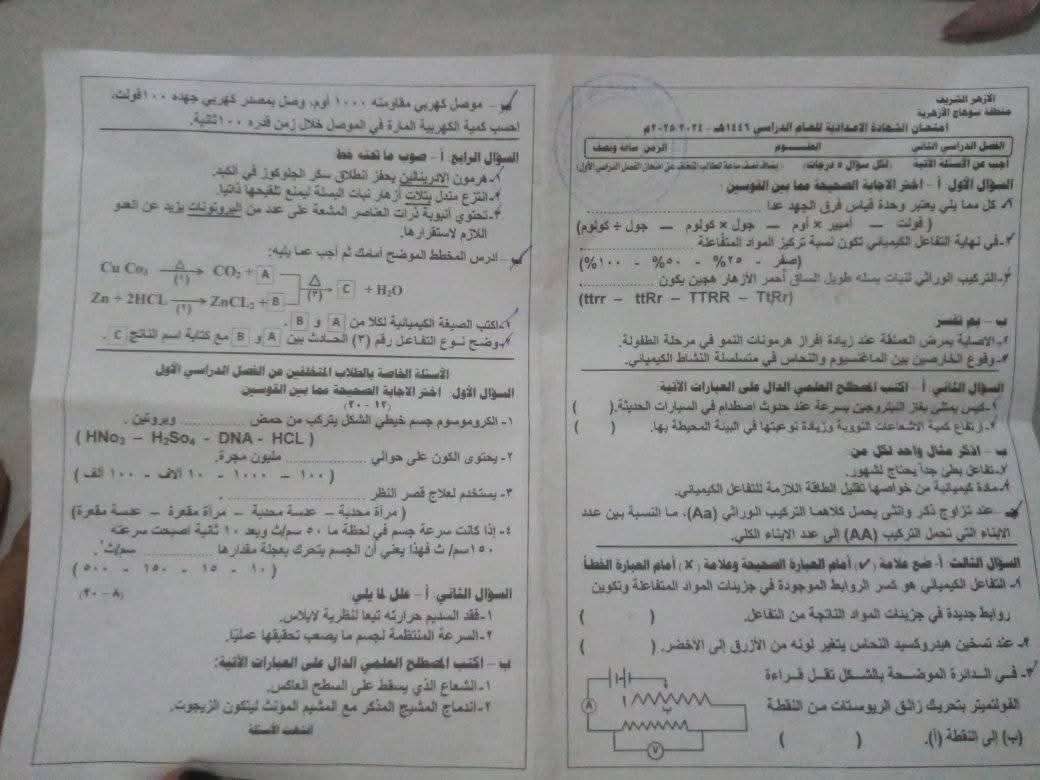 الأزهر الشريف
منطقة سوهاج الأزهرية
امتحان الشهادة الاعدادية للعام الدراسي ١٤٤٦هـ - ٢٠٢٤ ٢٠٢٥م
الفصل الدراسي الثاني العلـــــوم الزمن ساعة ونصف
أجب عن الأسئلة الآتية (لكل سؤال ٥ درجات)
السؤال الأول: أ - اختر الاجابة الصحيحة مما بين القوسين
١- كل مما يلي يعتبر وحدة قياس فرق الجهد عدا ....................
( فولت — أمبير × أوم — جول × كولوم — جول ÷ كولوم)
٢- في نهاية التفاعل الكيميائي تكون نسبة تركيز المواد المتفاعلة ....................
(صفر - ٢٥% - ٥٠% - ١٠٠%)
٣- التركيب الوراثي لنبات بسله طويل الساق أحمر الأزهار هجين يكون ....................
(ttrr – ttRr – TTRR – TtRr)
ب – بم تفسر
١- الاصابة بمرض العملقة عند زيادة إفراز هرمونات النمو في مرحلة الطفولة.
٢- وقوع الخارصين بين الماغنسيوم والنحاس في متسلسلة النشاط الكيميائي.
السؤال الثاني: أ - اكتب المصطلح العلمي الدال على العبارات الآتية
١- كيس يمتلئ بغاز النيتروجين بسرعة عند حدوث اصطدام في السيارات الحديثة. ( )
٢- ارتفاع كمية الاشعاعات النووية وزيادة نوعيتها في البيئة المحيطة بها. ( )
ب – اذكر مثال واحد لكل من:
١- تفاعل بطئ جداً يحتاج لشهور.
٢- مادة كيميائية من خواصها تقليل الطاقة اللازمة للتفاعل الكيميائي.
جـ – عند تزاوج ذكر وانثى يحمل كلاهما التركيب الوراثي (Aa)، ما النسبة بين عدد
الابناء التي تحمل التركيب (AA) إلى عدد الابناء الكلي.
السؤال الثالث: أ- ضع علامة (✓) أمام العبارة الصحيحة وعلامة (✗) أمام العبارة الخطأ
١- التفاعل الكيميائي هو كسر الروابط الموجودة في جزيئات المواد المتفاعلة وتكوين
روابط جديدة في جزيئات المواد الناتجة من التفاعل. ( )
٢- عند تسخين هيدروكسيد النحاس يتغير لونه من الأزرق إلى الأخضر. ( )
٣- في الدائرة الموضحة بالشكل تقل قراءة
الفولتميتر بتحريك زالق الريوستات من النقطة
(ب) إلى النقطة (أ). ( )
A
أ
ب
V
ب – موصل كهربي مقاومته ١٠٠٠ أوم، وصل بمصدر كهربي جهده ١٠٠ فولت،
احسب كمية الكهربية المارة في الموصل خلال زمن قدره ١٠٠ ثانية.
السؤال الرابع: أ – صوب ما تحته خط
١- هرمون الادرينالين يحفز انطلاق سكر الجلوكوز في الكبد.
٢- انتزع مندل بتلات أزهار نبات البسلة ليمنع تلقيحها ذاتيا.
٣- تحتوي أنيوبة ذرات العناصر المشعة على عدد من البروتونات يزيد عن العدد
اللازم لاستقرارها.
ب – ادرس المخطط الموضح أمامك ثم أجب عما يليه:
Cu Co₃ △ (١) CO₂ + A
△ (٣) C + H₂O
Zn + 2HCL (٢) ZnCL₂ + B
١- اكتب الصيغة الكيميائية لكلا من A و B .
٢- وضح نوع التفاعل رقم (٣) الحادث بين A و B مع كتابة اسم الناتج C .
الأسئلة الخاصة بالطلاب المتخلفين عن الفصل الدراسي الأول
السؤال الأول: اختر الاجابة الصحيحة مما بين القوسين
(١٢ - ٢٠)
١- الكروموسوم جسم خيطي الشكل يتركب من حمض .............. وبروتين .
( HNo₃ – H₂So₄ - DNA - HCL )
٢- يحتوى الكون على حوالي .............. مليون مجرة.
( ١٠٠ – ١٠٠٠ - ١٠ آلاف - ١٠٠ ألف )
٣- يستخدم لعلاج قصر النظر .................... .
( مرآة محدبة – عدسة محدبة - مرآة مقعرة – عدسة مقعرة)
٤- إذا كانت سرعة جسم في لحظة ما ٥٠ سم/ث وبعد ١٠ ثانية أصبحت سرعته
١٥٠ سم/ ث فهذا يعني أن الجسم يتحرك بعجلة مقدارها .............. سم/ث².
( ١٠ - ١٥ - ١٥٠ - ٥٠٠ )
السؤال الثاني: أ – علل لما يلي (٨ - ٢٠)
١- فقد السديم حرارته تبعا لنظرية لابلاس.
٢- السرعة المنتظمة لجسم ما يصعب تحقيقها عمليًا.
ب – اكتب المصطلح العلمي الدال على العبارات الآتية:
١- الشعاع الذي يسقط على السطح العاكس.
٢- اندماج المشيج المذكر مع المشيج المؤنث ليتكون الزيجوت.
انتهت الأسئلة